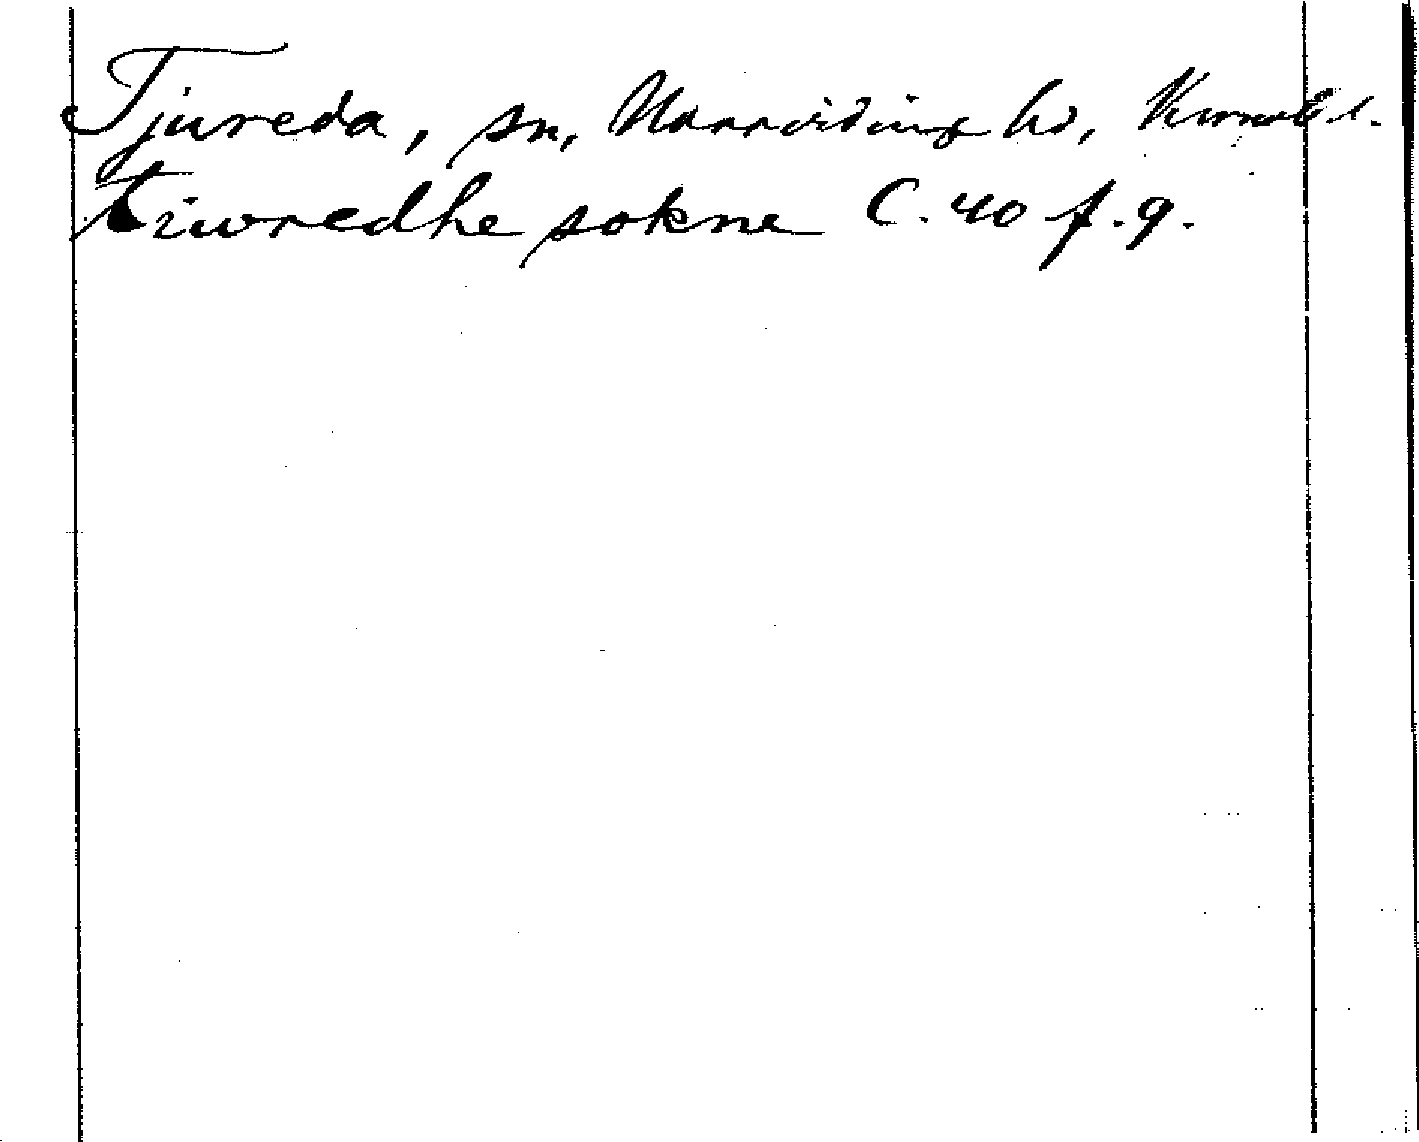 Tjureda, sn, Norrvidinge hd, Kronob. l.
Tiwredhe sokne C. 40 f. 9.